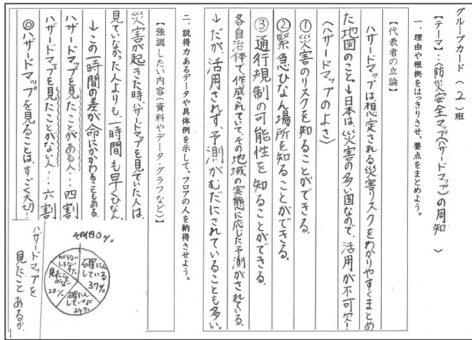 グループカード（２）班
【テーマ】：〈防災安全マップ（ハザードマップ）の周知〉
一、理由や根拠をはっきりさせ、要点をまとめよう。
【代表者の立論】
ハザードマップは想定される災害リスクをわかりやすくまとめ
た地図のこと→日本は災害の多い国なので、活用が不可欠！
〈ハザードマップのよさ〉
①災害のリスクを知ることができる。
②緊急ひなん場所を知ることができる。
③通行規制の可能性を知ることができる。
各自治体で作成されていて、その地域の実態に応じた予測がされている。
→だが、活用されず、予測がむだにされていることも多い。
二、説得力あるデータや具体例を示して、フロアの人を納得させよう。
【強調したい内容（資料やデータ・グラフなど）】
災害が起きた時、ハザードマップを見ていた人は、
見ていなかった人よりも、一時間も早くひなん
→この一時間の差が命にかかわることもある。
ハザードマップを見たことがある人…四割
ハザードマップを見たことがない人…六割
◎ハザードマップを見ることは、すごく大切…
その他0%
37%
24%
20%
ハザードマップを
見たことあるか